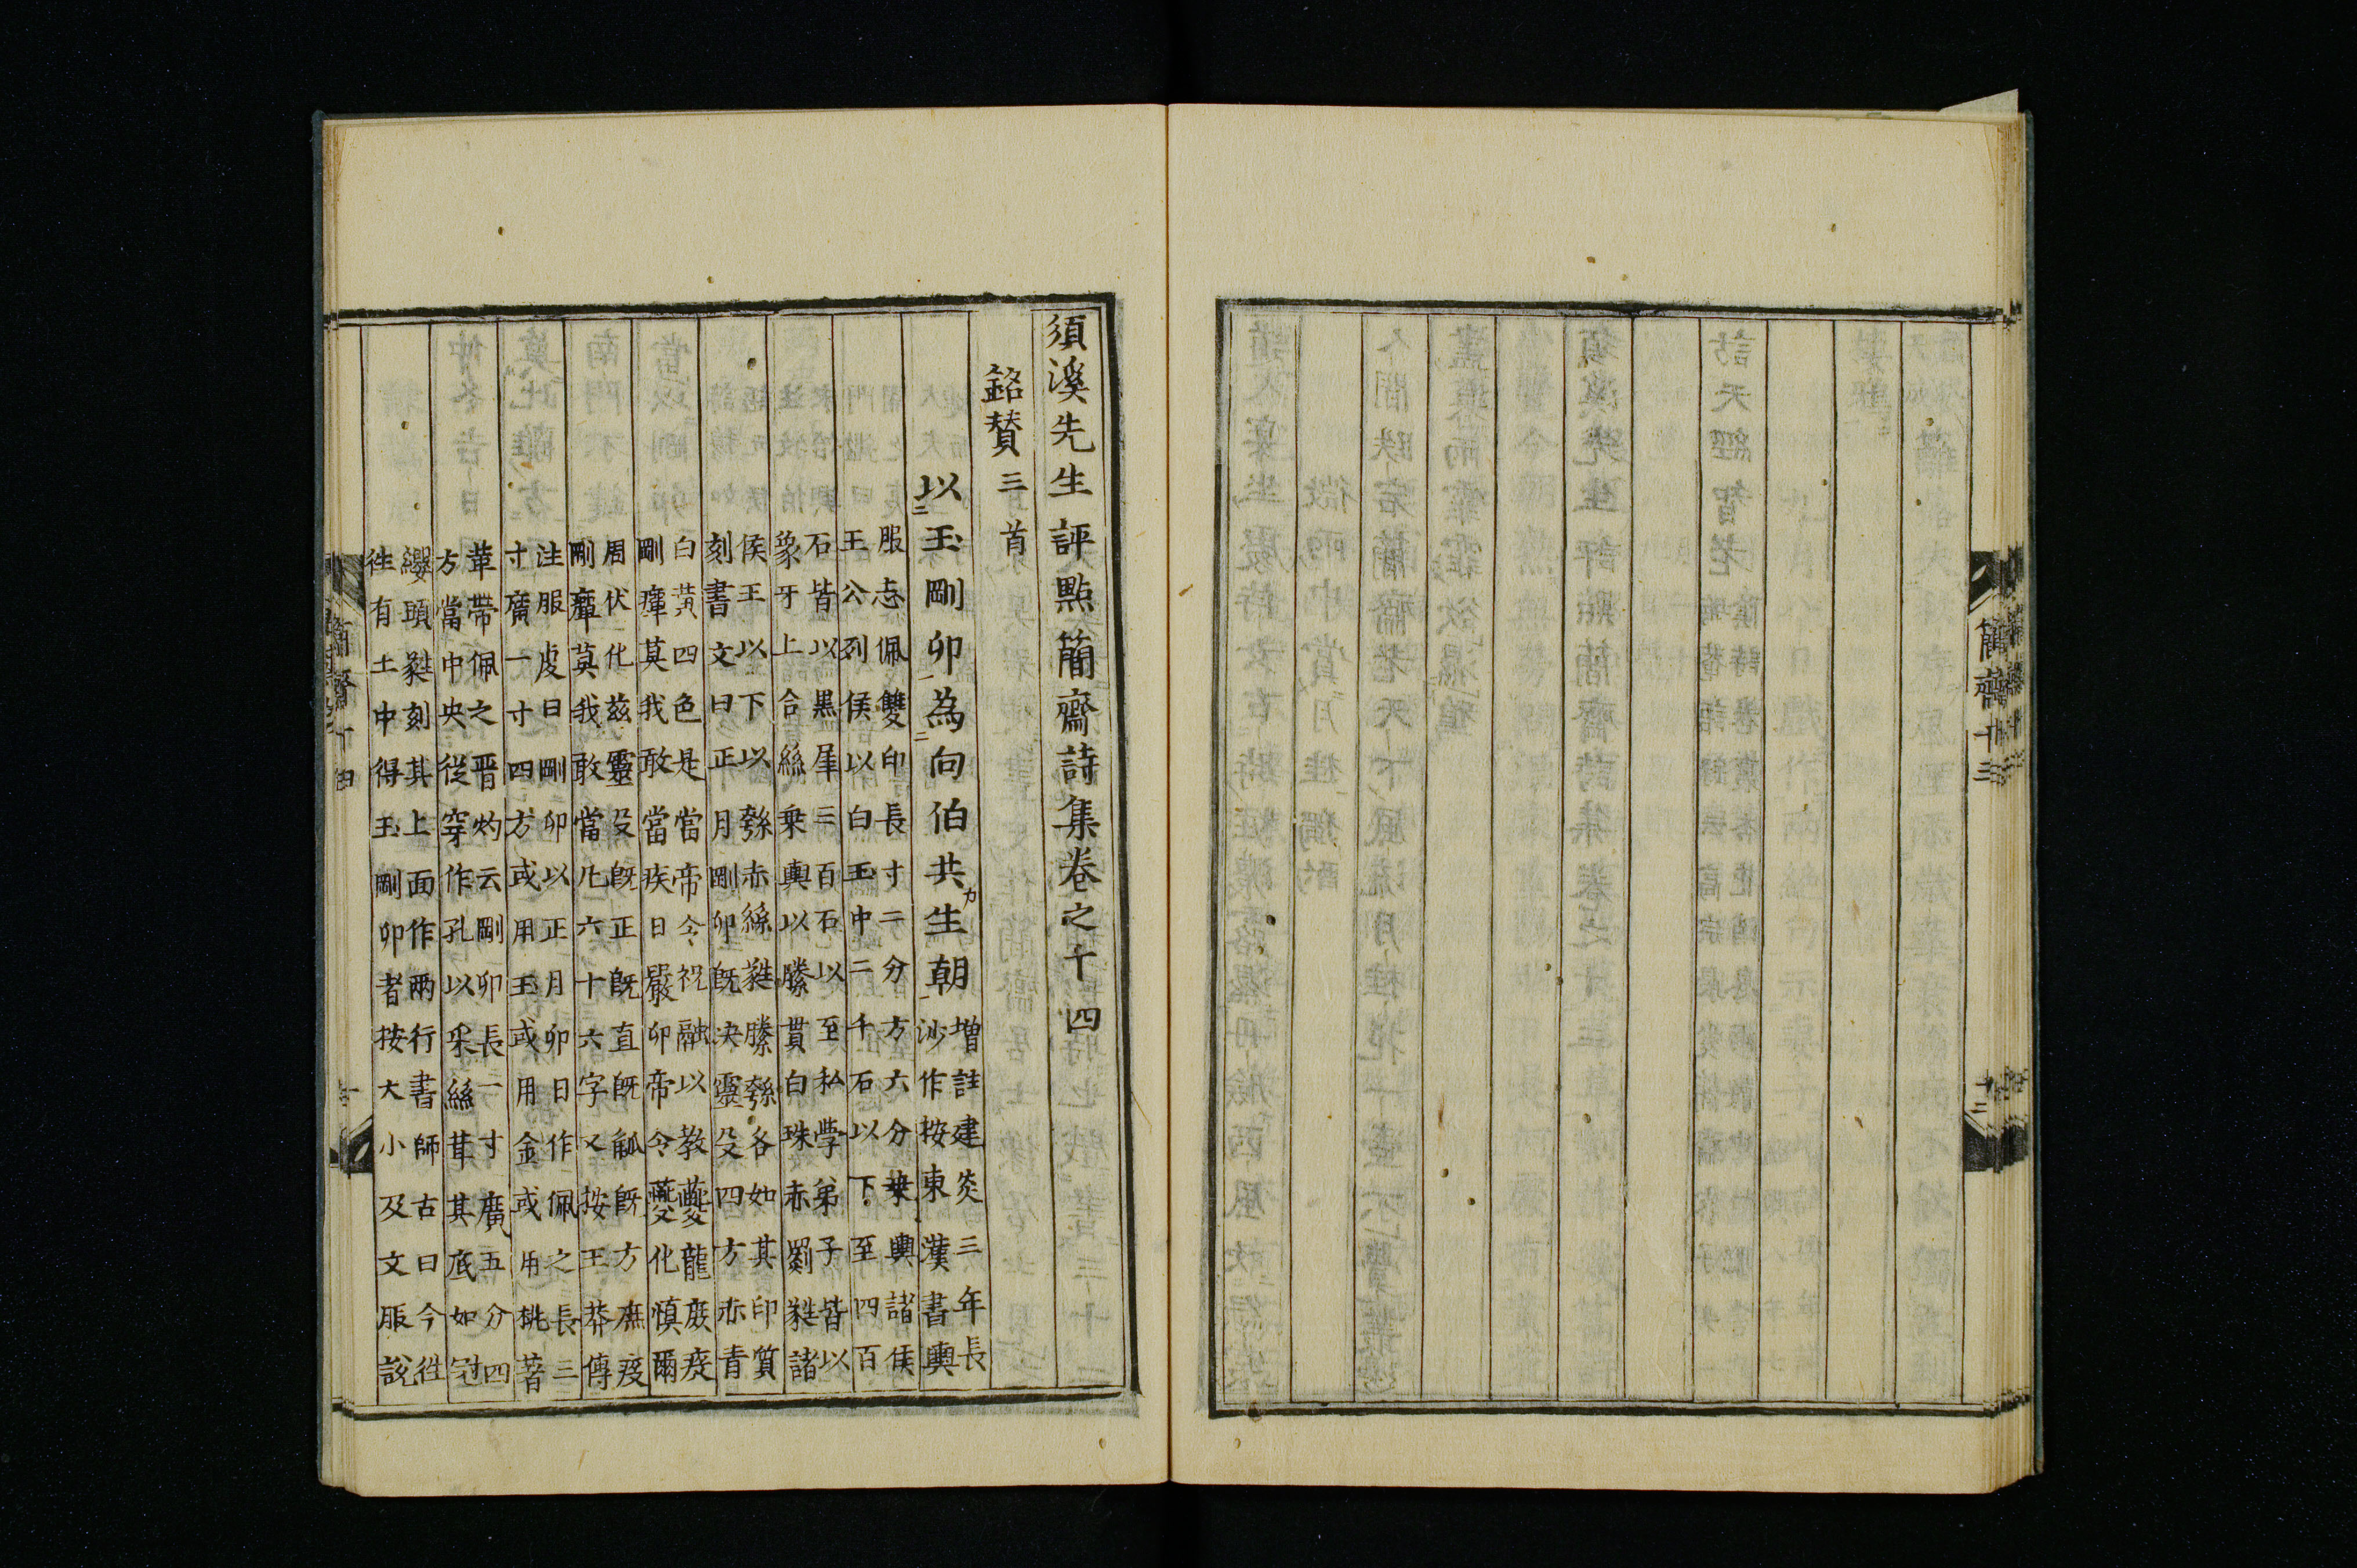 須溪先生評點簡齋詩集卷之十四
銘贊三首
以玉剛卯為向伯共生朝
增註建炎三年長
沙作按東漢書輿
服志佩雙印長寸二分方六分乗輿諸侯
王公列侯以白玉中二千石以下至四百
石皆以黒犀三百石以至私學弟子皆以
象牙上合絲乗輿以縢貫白珠赤罽蕤諸
侯王以下以綔赤絲蕤縢綔各如其印質
刻書文曰正月剛卯既决靈殳四方赤青
白黃四色是當帝令祝融以教夔龍庶疫
剛癉莫我敢當疾日嚴卯帝令夔化慎爾
周伏化兹靈殳既正既直既觚既方庶疫
剛癉莫我敢當凡六十六字又按王莽傳
注服虔曰剛卯以正月卯日作佩之長三
寸廣一寸四方或用玉或用金或用桃著
革帶佩之晋灼云剛卯長一寸廣五分四
方當中央從穿作孔以采絲葺其底如冠
纓頭蕤刻其上面作兩行書師古曰今徃
徃有土中得玉剛卯者按大小及文服說
簡齋十四
一
簡齋十三
十二